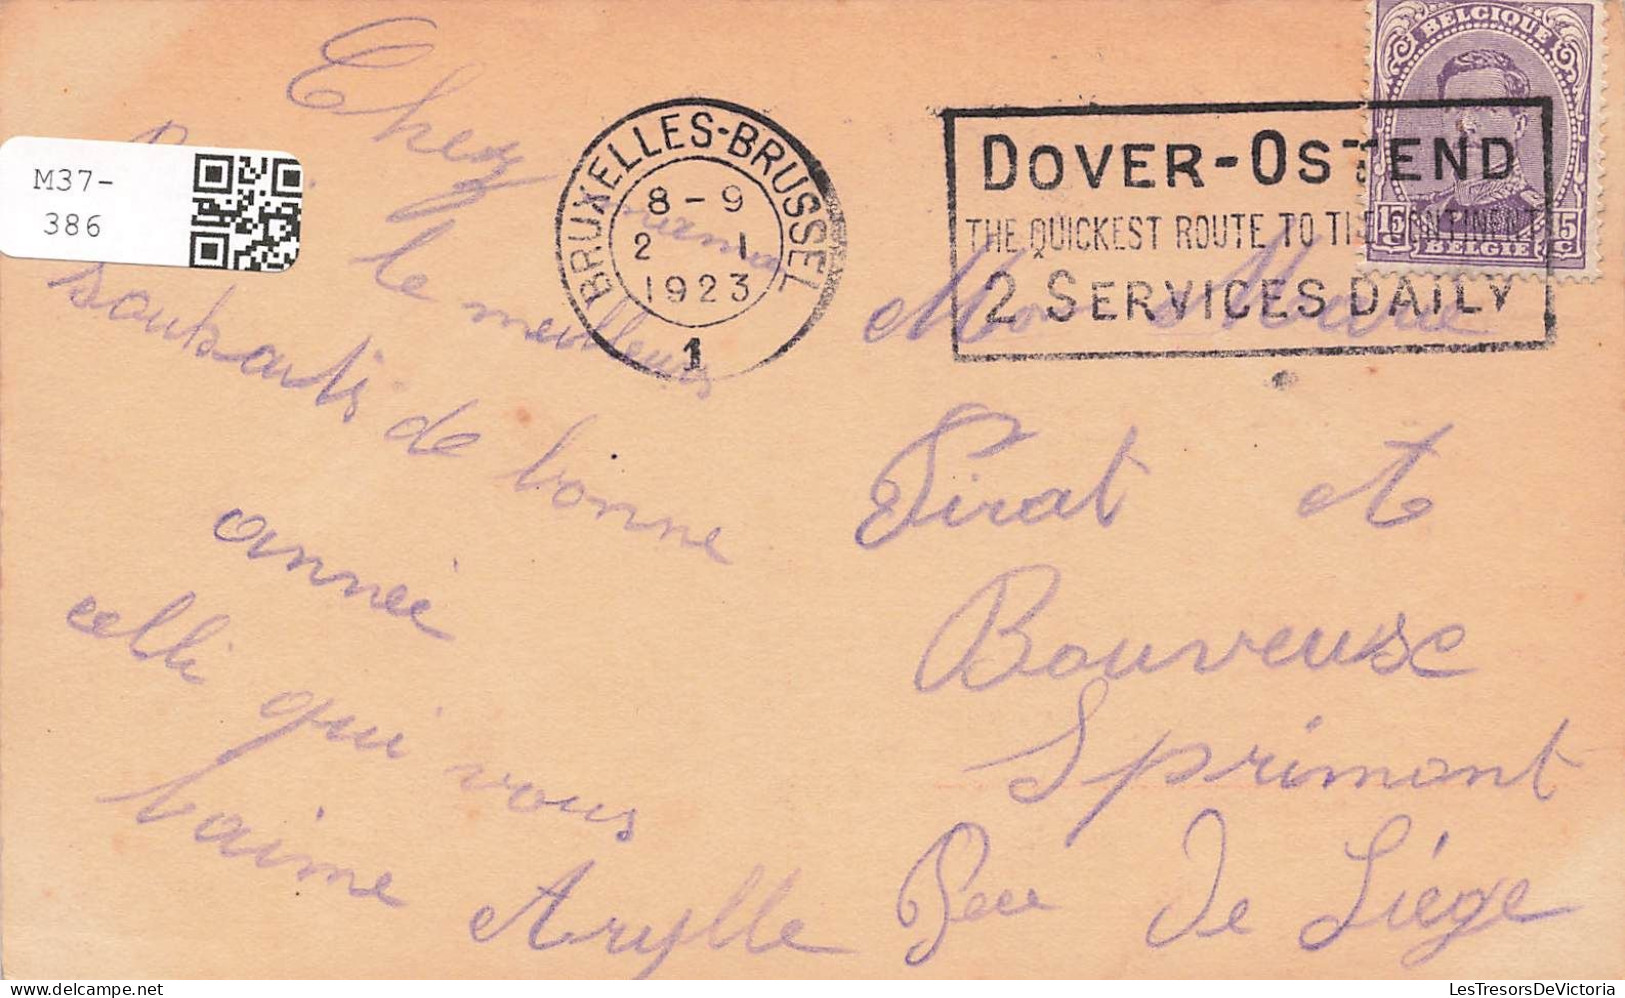 M37-
386
Chez
le meilleurs
souhaits de bonne
année
celli qui vous
t'aime Arylle
BRUXELLES-BRUSSEL
8-9
2 1
1923
1
DOVER-OSTEND
THE QUICKEST ROUTE TO THE CONTINENT
2 SERVICES DAILY
BELGIQUE
15 15
C C
BELGIE
Pirat et
Bouveuse
Sprimont
de Liége
LesTresorsDeVictoria
www.delcampe.net